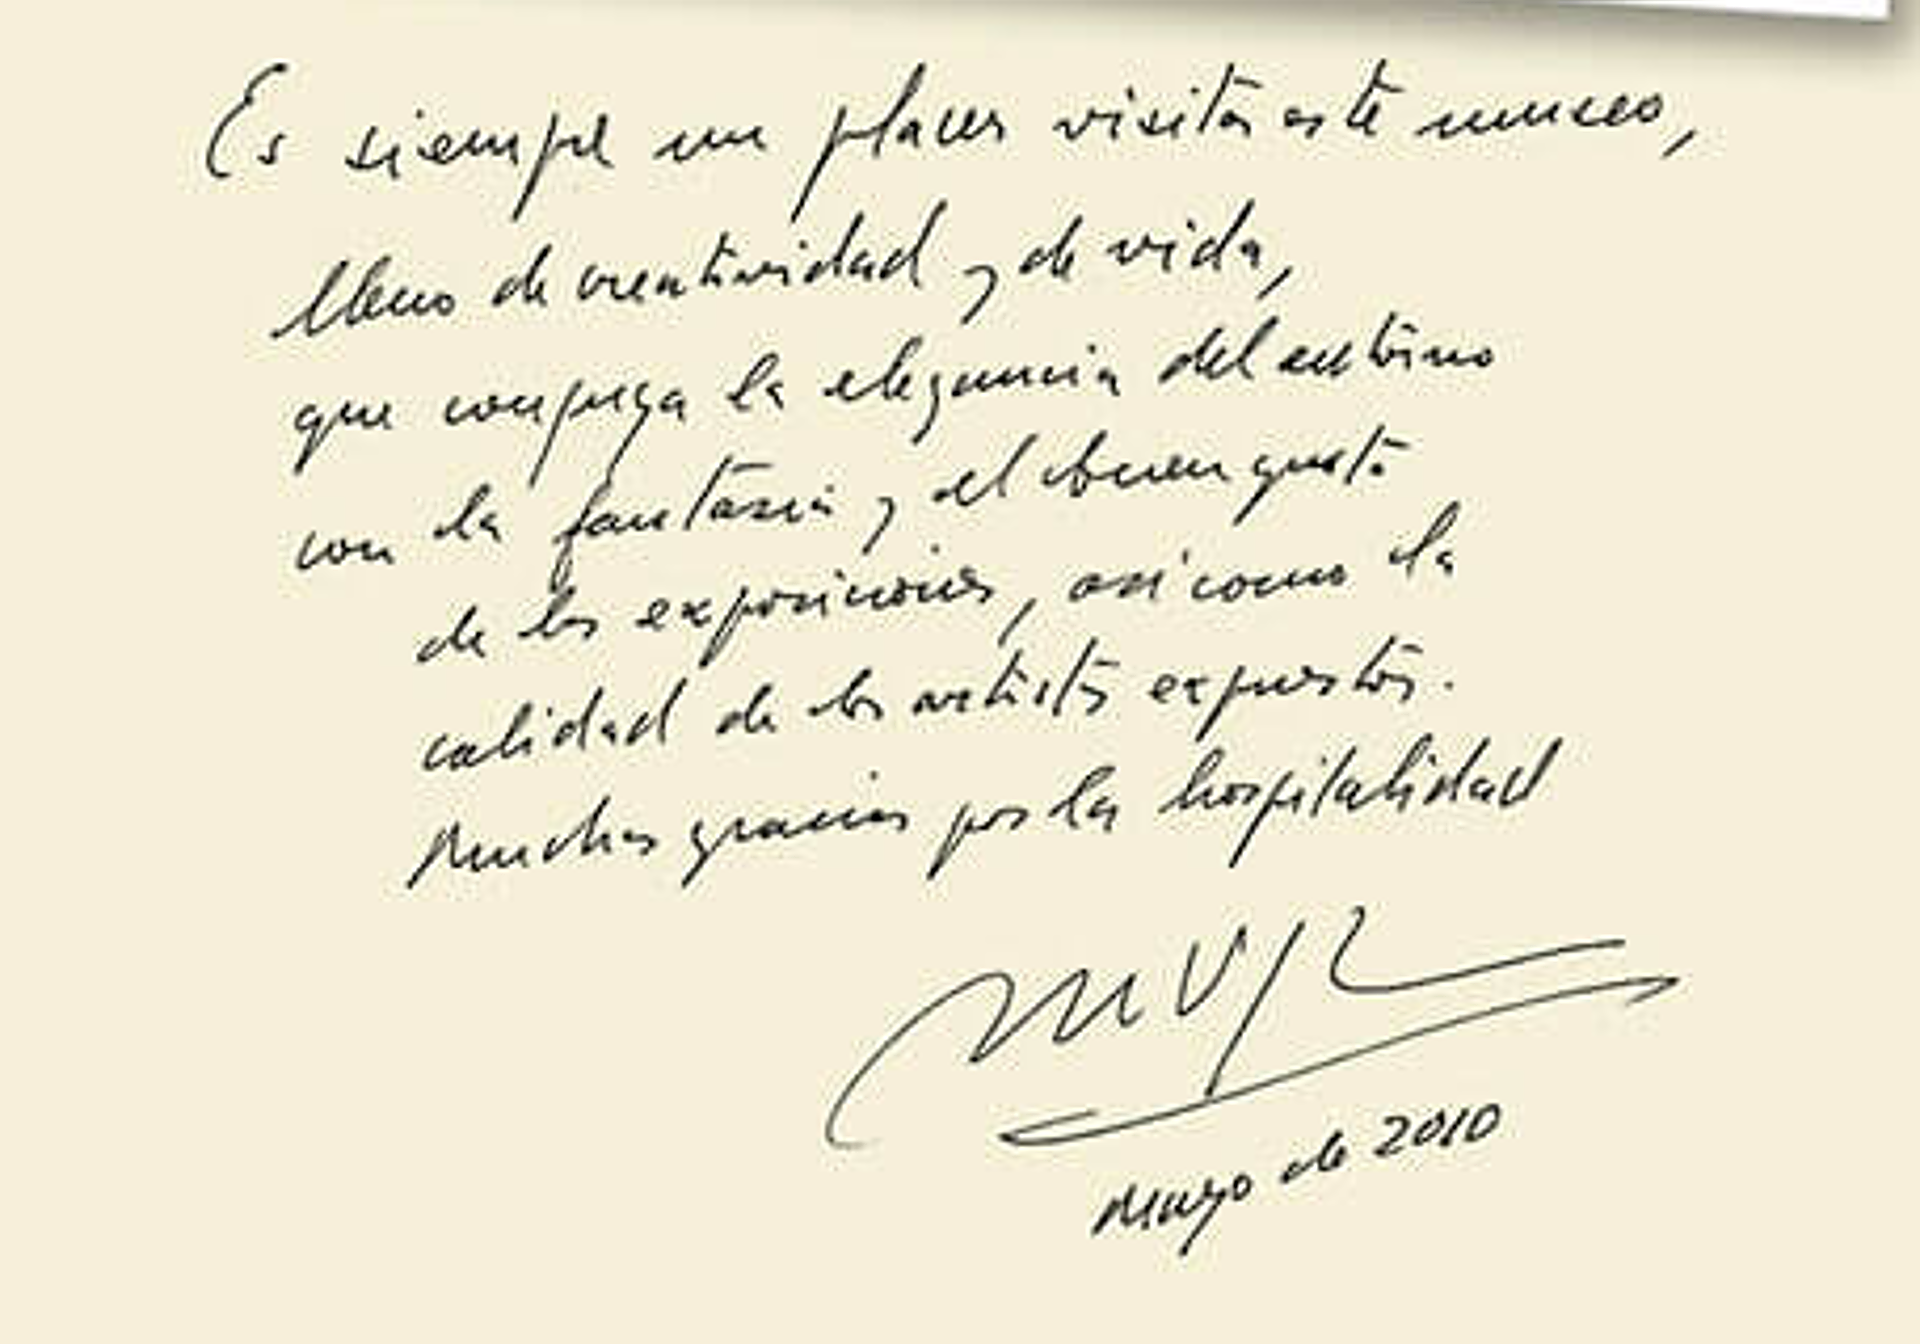 Es siempre un placer visitar este museo,
lleno de creatividad y de vida,
que conjuga la elegancia del entorno
con la fantasía y el buen gusto
de las exposiciones, así como la
calidad de los artistas expuestos.
Muchas gracias por la hospitalidad
Mayo de 2010